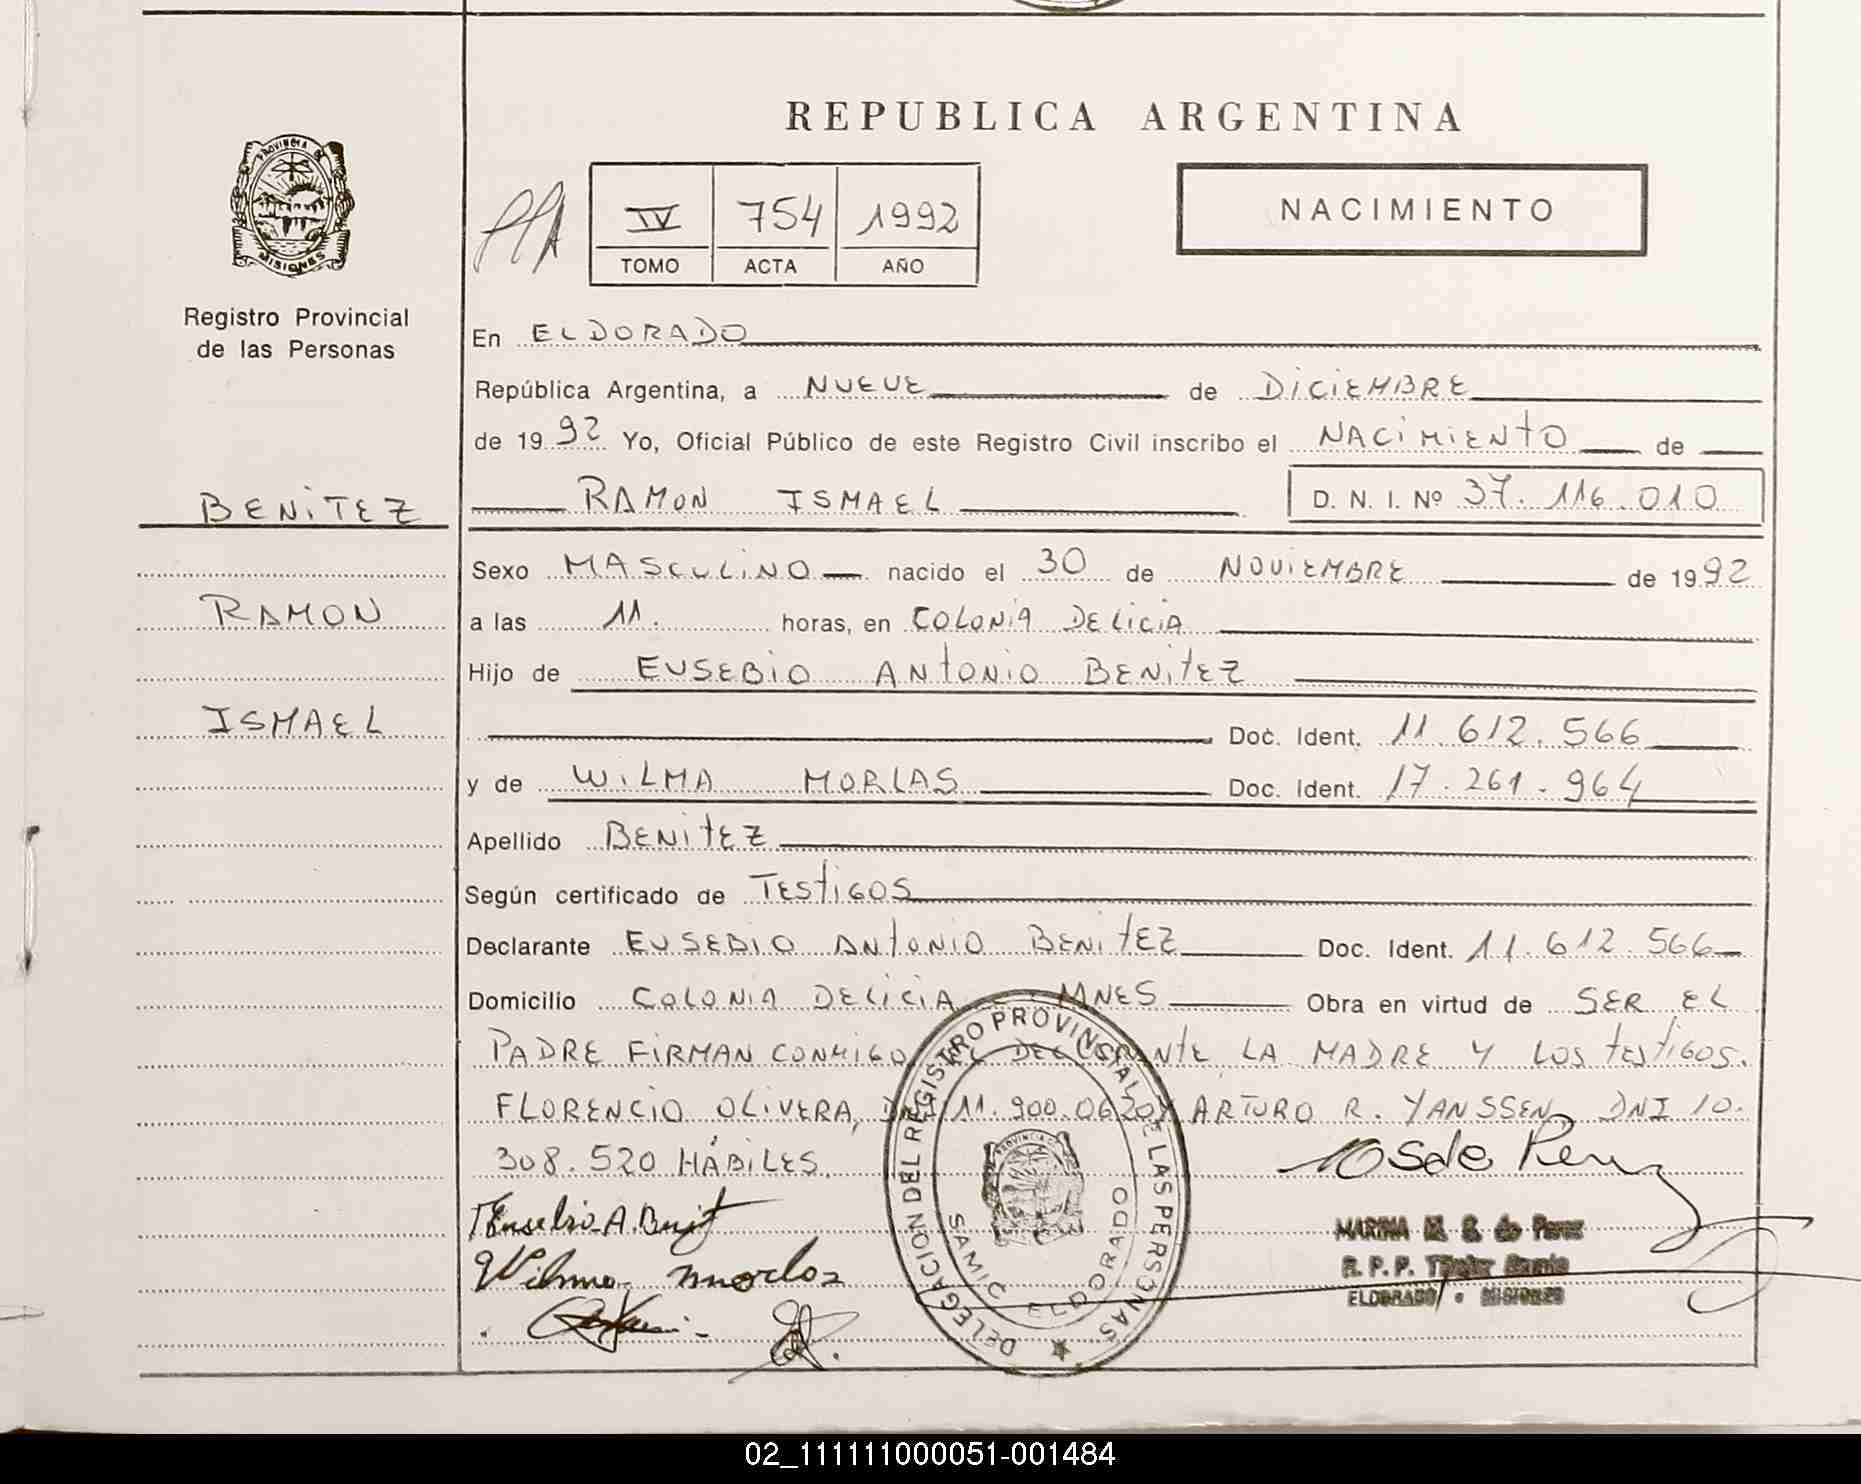 REPUBLICA ARGENTINA
PROVINCIA DE
MISIONES
Registro Provincial
de las Personas
IV 754 1992
TOMO ACTA AÑO
NACIMIENTO
En ELDORADO
República Argentina, a NUEVE de DICIEMBRE
de 1992 Yo, Oficial Público de este Registro Civil inscribo el NACIMIENTO de
RAMON ISMAEL D. N. I. Nº 37.116.010
BENITEZ
RAMON
ISMAEL
Sexo MASCULINO nacido el 30 de NOVIEMBRE de 1992
a las 11. horas, en COLONIA DELICIA
Hijo de EUSEBIO ANTONIO BENITEZ
Doc. Ident. 11.612.566
y de WILMA MORLAS Doc. Ident. 17.261.964
Apellido BENITEZ
Según certificado de TESTIGOS
Declarante EUSEBIO ANTONIO BENITEZ Doc. Ident. 11.612.566
Domicilio COLONIA DELICIA - MNES Obra en virtud de SER EL
PADRE FIRMAN CONMIGO EL DECLARANTE, LA MADRE Y LOS TESTIGOS.
FLORENCIO OLIVERA, DNI 11.900.062 Y ARTURO R. YANSSEN, DNI 10.
308.520 HÁBILES.
Eusebio A. Benit
Wilma morlas
DELEGACION DEL REGISTRO PROVINCIAL DE LAS PERSONAS
SAMIC ELDORADO
MARINA M. S. de Perez
R. P. P. Titular
ELDORADO - MISIONES
02_111111000051-001484